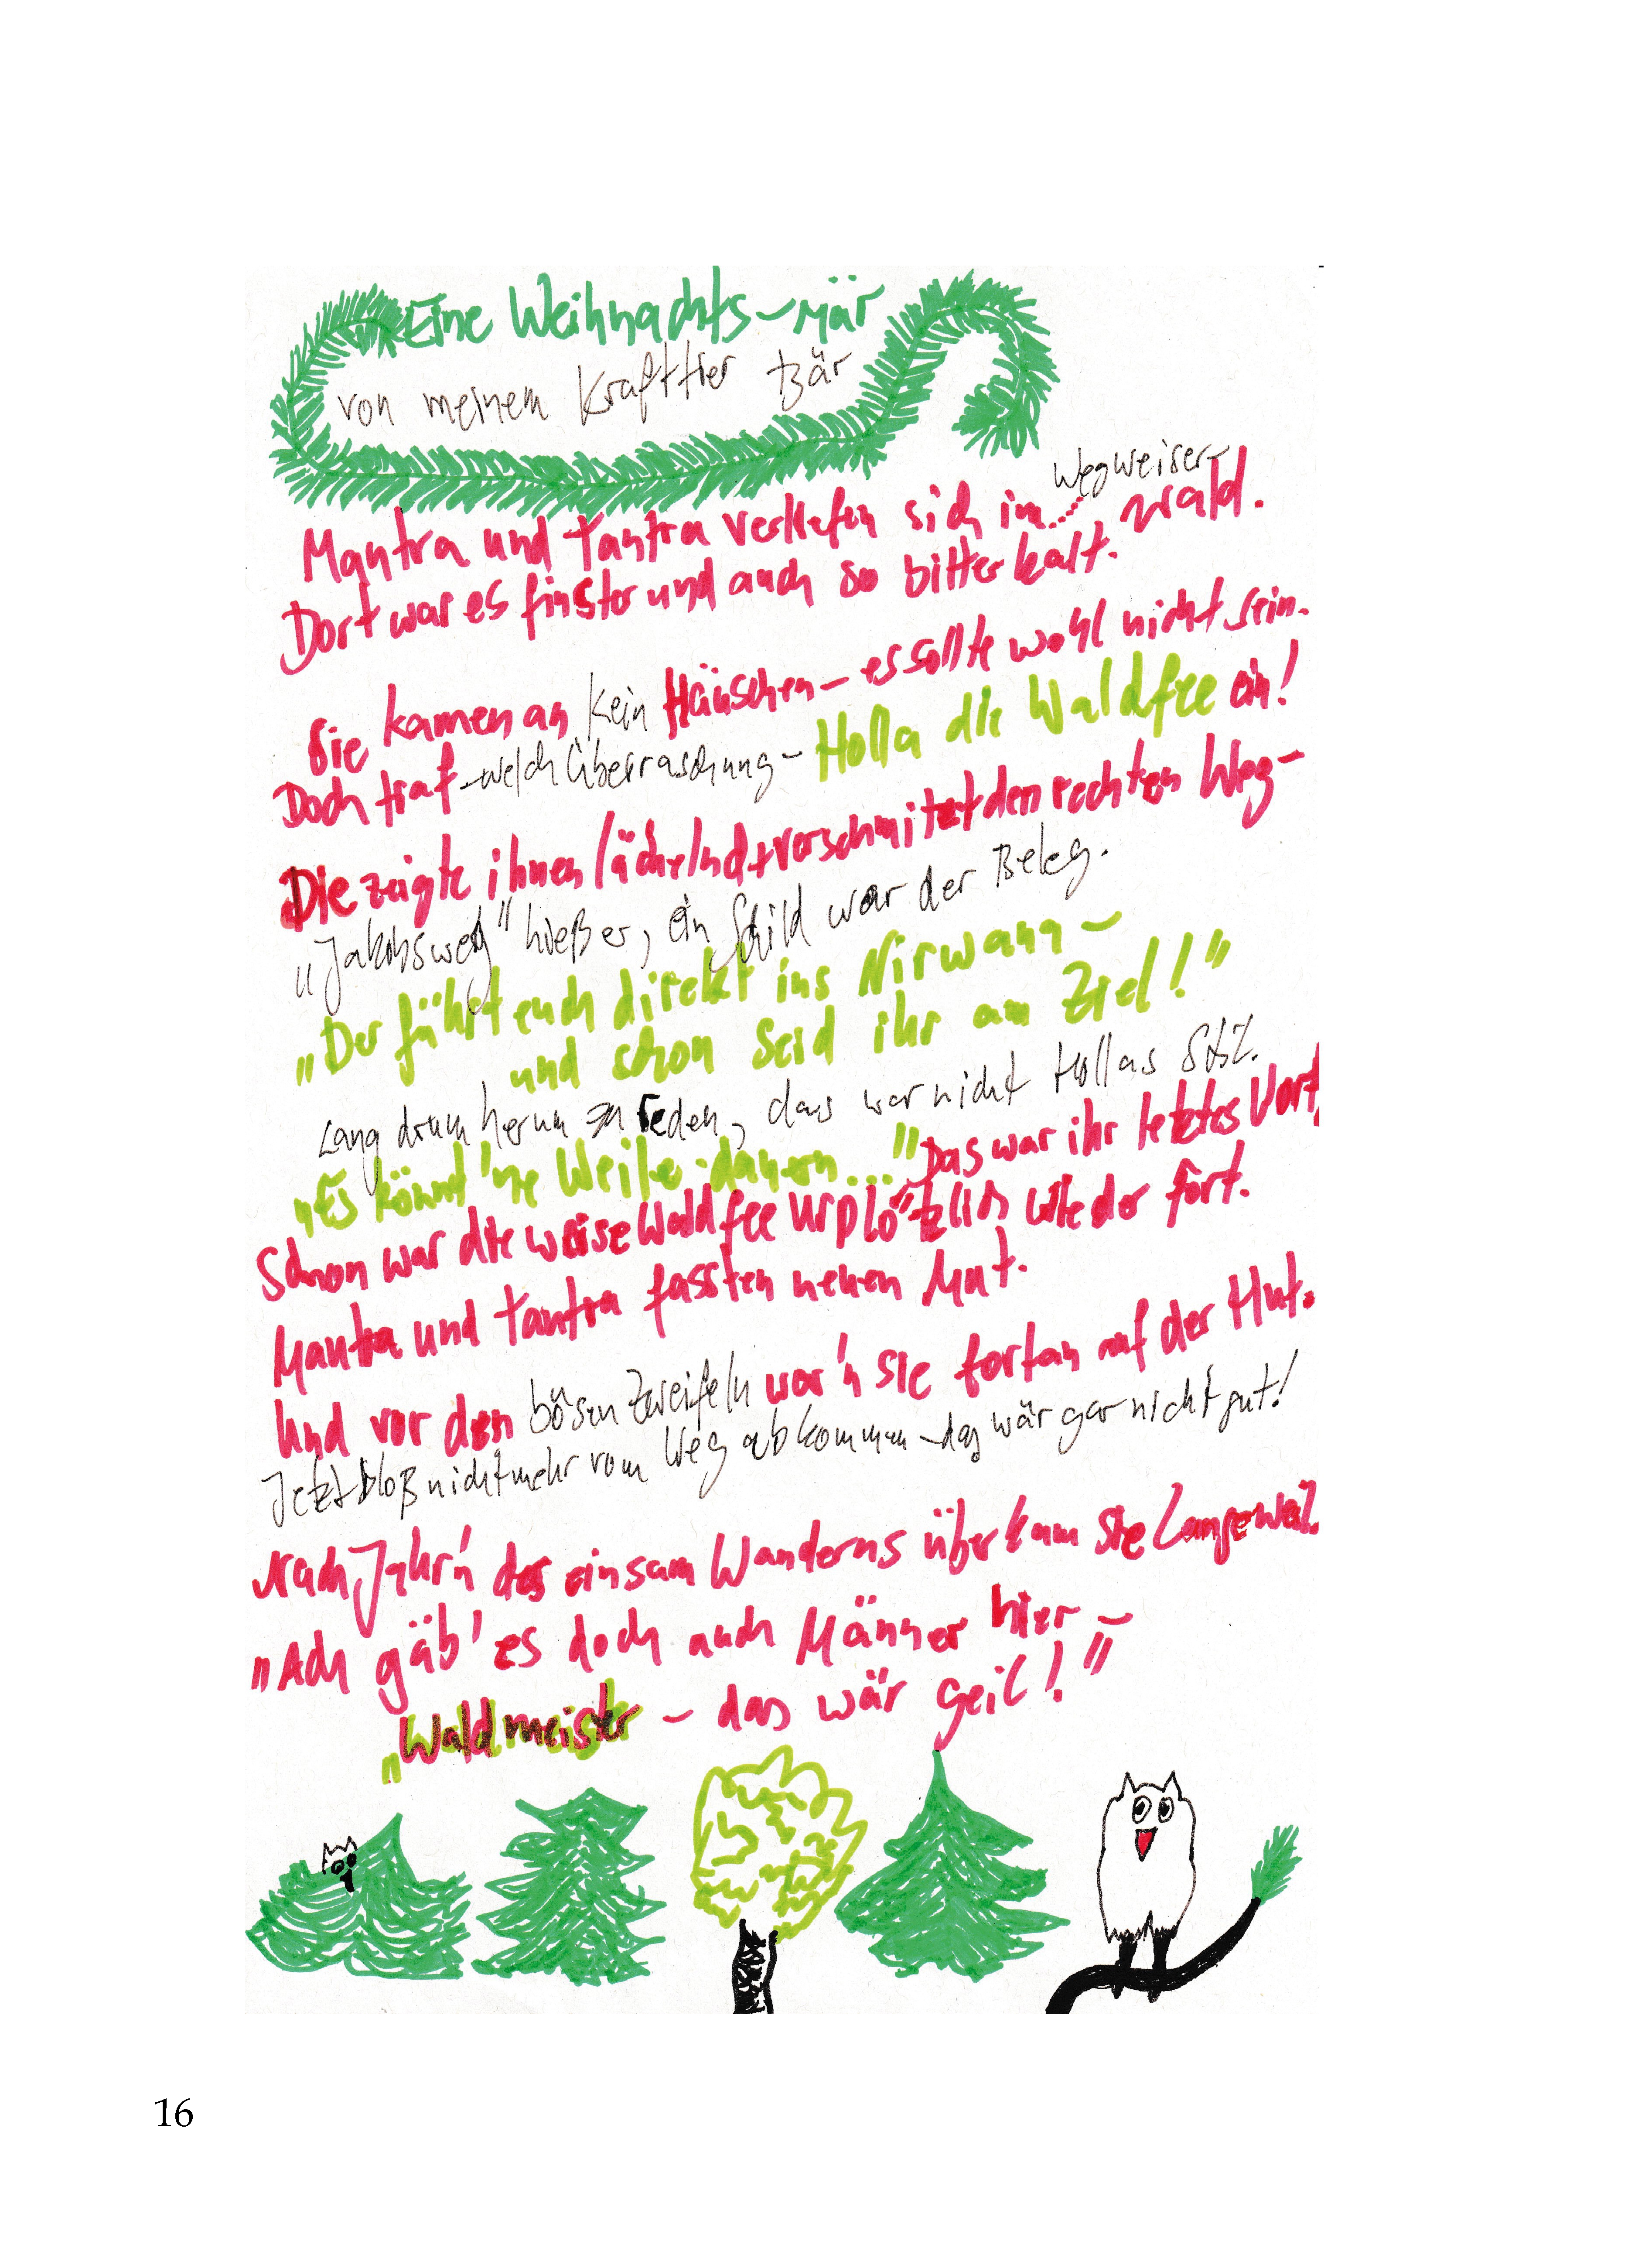 Eine Weihnachts-Mär
von meinem Krafttier Bär
Wegweiser-
Mantra und Tantra verliefen sich im...... wald.
Dort war es finster und auch so bitter kalt.
Sie kamen an kein Häuschen – es sollte wohl nicht sein.
Doch traf – welch Überraschung – Holla die Waldfee ein!
Die zeigte ihnen lächelnd + verschmitzt den rechten Weg –
„Jakobsweg" hieß er, ein Schild war der Beleg.
„Der führt euch direkt ins Nirwana –
und schon seid ihr am Ziel!"
Lang drum herum zu reden, das war nicht Hollas Stil.
„Es könnt 'ne Weile dauern..." Das war ihr letztes Wort,
Schon war die weise Waldfee urplötzlich wieder fort.
Mantra und Tantra fassten neuen Mut.
Und vor den bösen Zweifeln war'n sie fortan auf der Hut.
Jetzt bloß nicht mehr vom Weg abkommen – das wär gar nicht gut!
Nach Jahr'n des einsam Wanderns überkam sie Langeweil.
„Ach gäb' es doch auch Männer hier –
„Waldmeister – das wär geil!"
16